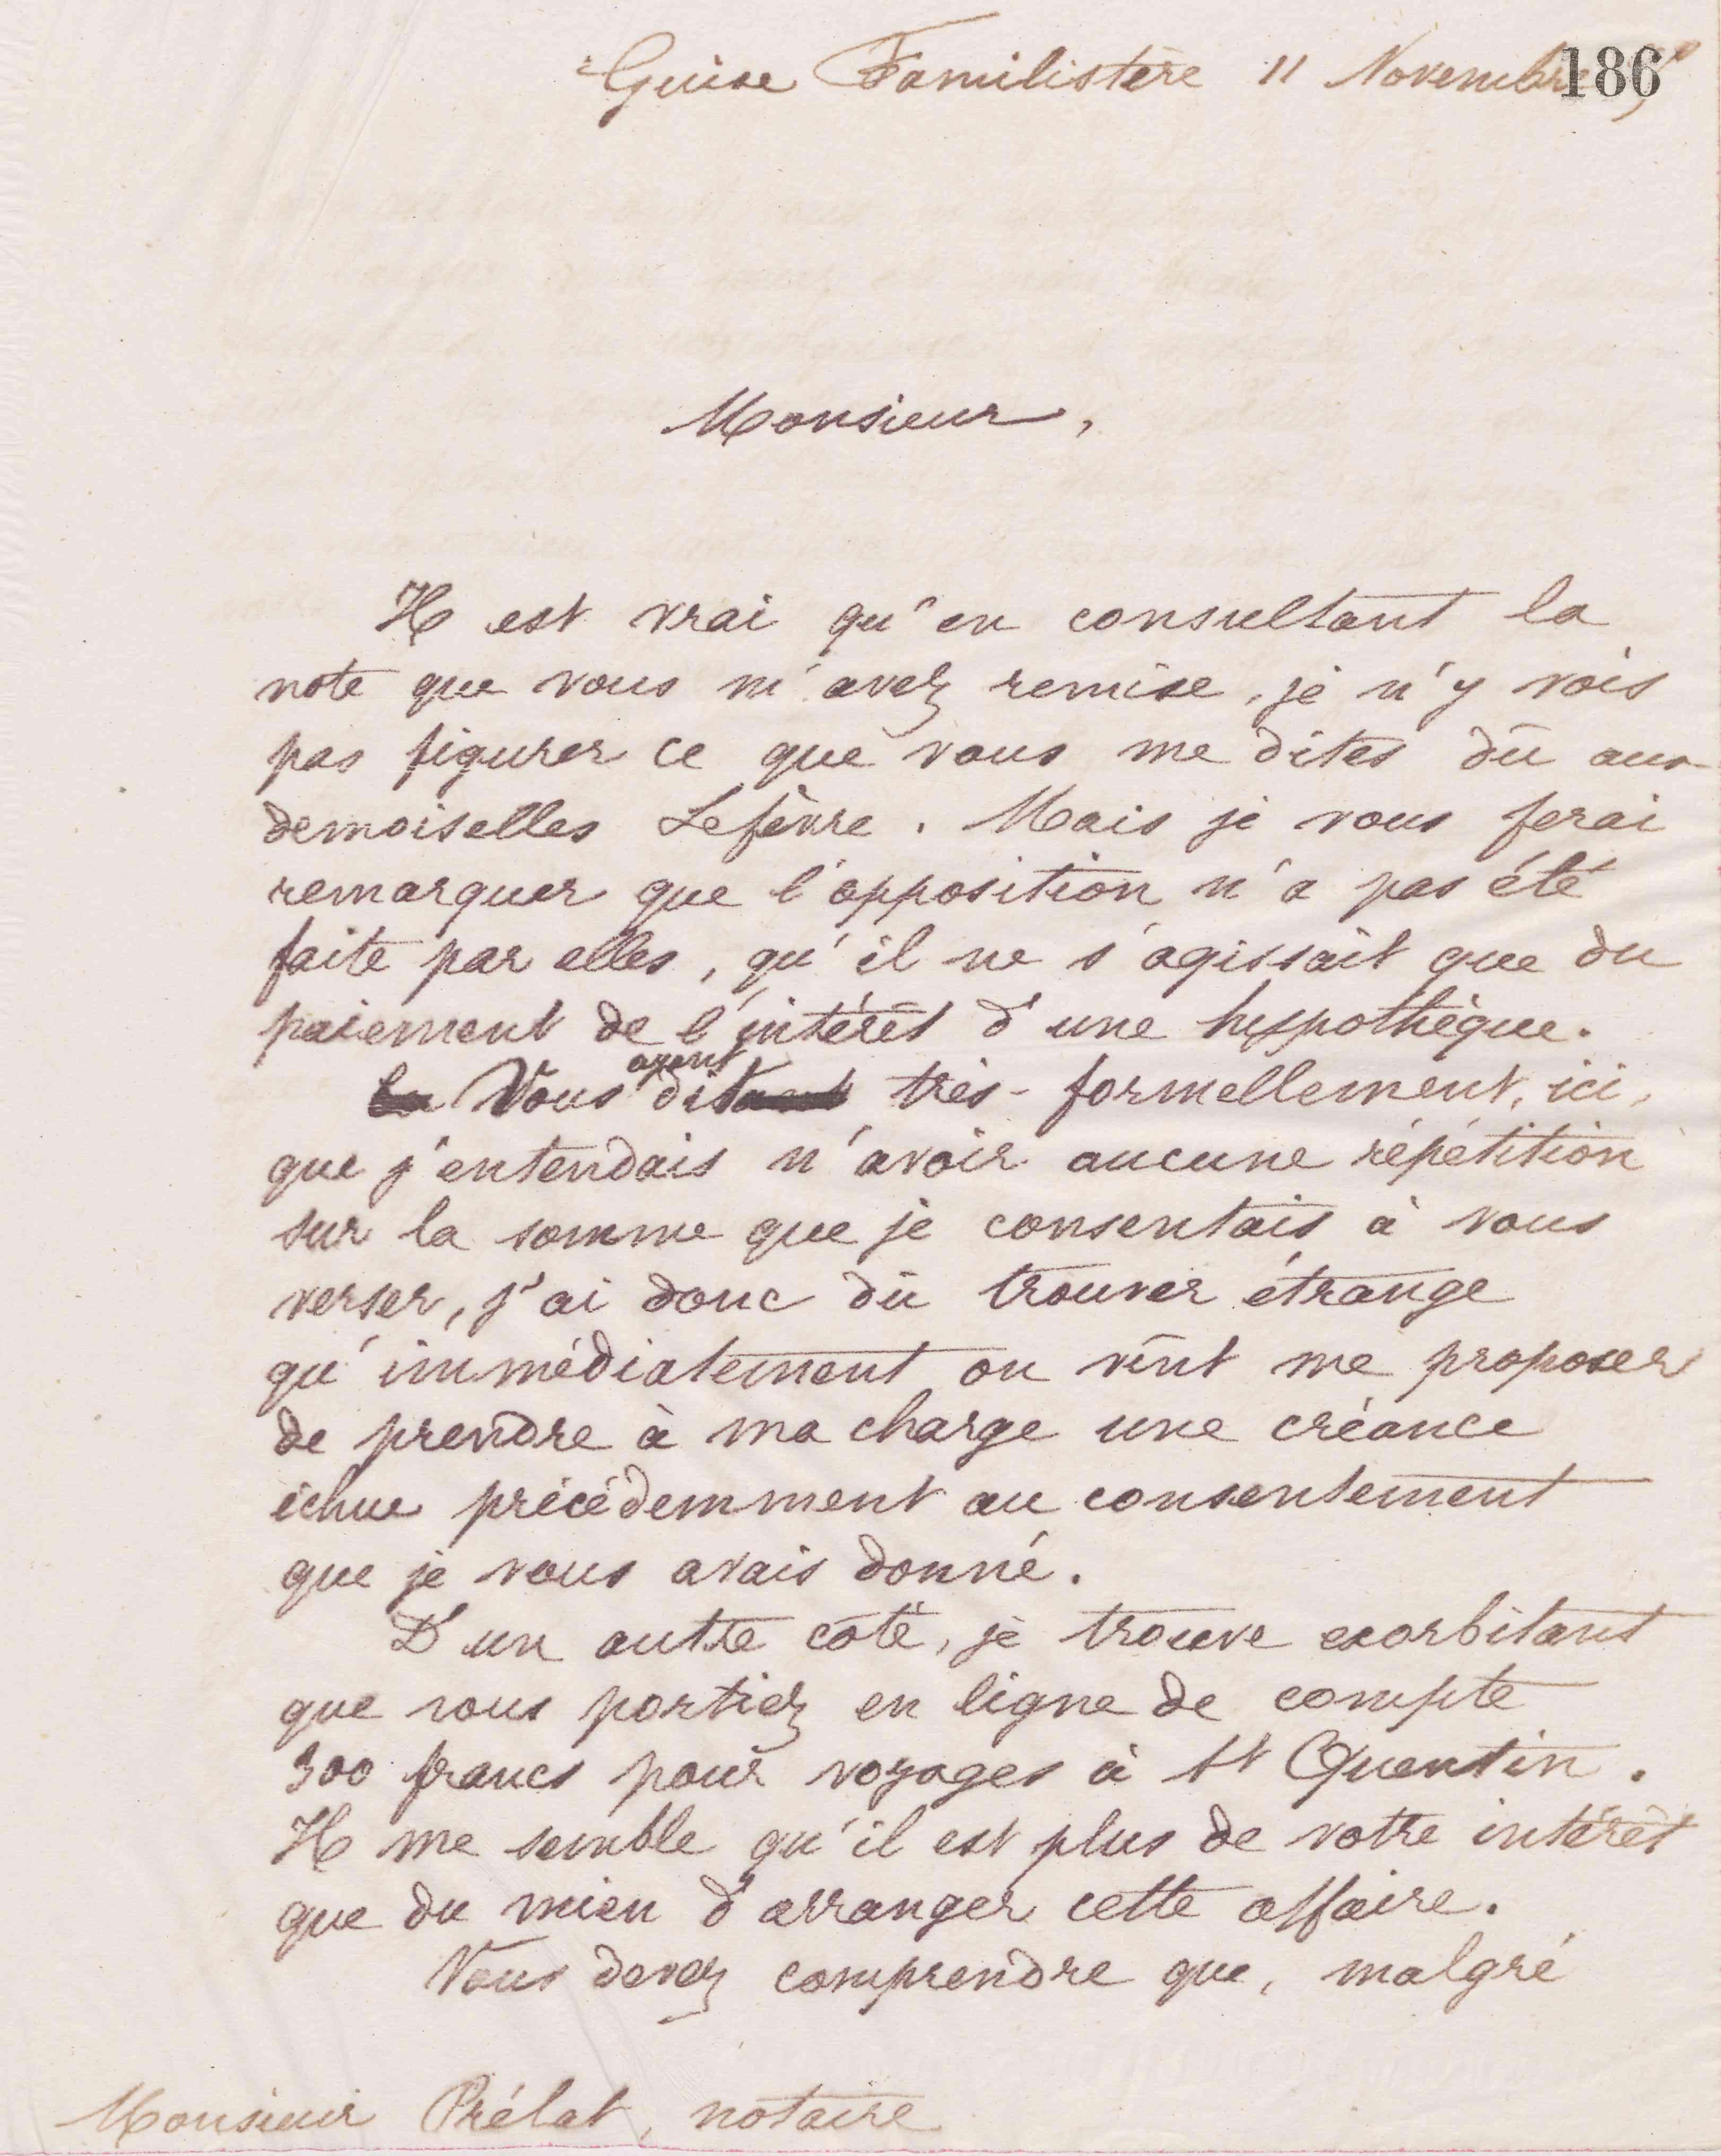 Guise Familistère 11 Novembre
186
Monsieur,
Il est vrai qu'en consultant la
note que vous m'avez remise, je n'y vois
pas figurer ce que vous me dites dû aux
demoiselles Lefèvre. Mais je vous ferai
remarquer que l'opposition n'a pas été
faite par elles, qu'il ne s'agissait que du
paiement de l'intérêt d'une hypothèque.
ayant
Vous dit très-formellement, ici,
que j'entendais n'avoir aucune répétition
sur la somme que je consentais à vous
verser, j'ai donc dû trouver étrange
qu'immédiatement on vînt me proposer
de prendre à ma charge une créance
échue précédemment au consentement
que je vous avais donné.
D'un autre côté, je trouve exorbitant
que vous portiez en ligne de compte
300 francs pour voyages à St Quentin.
Il me semble qu'il est plus de votre intérêt
que du mien d'arranger cette affaire.
Vous devez comprendre que, malgré
Monsieur Prélat, notaire